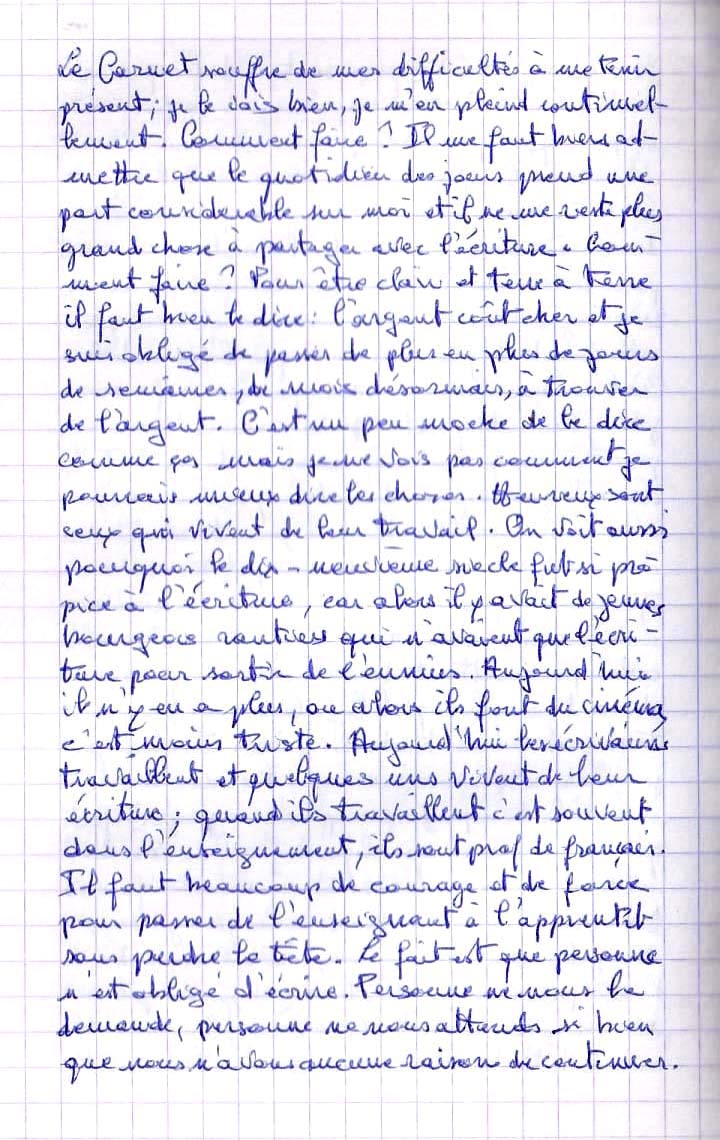 Le Carnet souffre de mes difficultés à me tenir
présent ; je le sais bien, je m'en plaind continuel-
lement. Comment faire ? Il me faut bien ad-
mettre que le quotidien des jours prend une
part considerable sur moi et il ne me reste plus
grand chose à partager avec l'écriture. Com-
ment faire ? Pour être clair et terre à terre
il faut bien le dire : l'argent coût cher et je
suis obligé de passer de plus en plus de jours
de semaines, de mois désormais, à trouver
de l'argent. C'est un peu moche de le dire
comme ça mais je ne vois pas comment je
pourrais mieux dire les choses. Heureux sont
ceux qui vivent de leur travail. On voit aussi
pourquoi le dix-neuvième siècle fut si pro
pice à l'écriture, car alors il y avait de jeunes
bourgeois rentiers qui n'avaient que l'écri-
ture pour sortir de l'ennuies. Aujourd'hui
il n'y en a plus, ou alors ils font du cinéma
c'est moins triste. Aujourd'hui les écrivains
travaillent et quelques uns vivent de leur
écriture ; quand ils travaillent c'est souvent
dans l'enseignement, ils sont prof de français.
Il faut beaucoup de courage et de force
pour passer de l'enseignant à l'apprentit
sans perdre la tête. Le fait est que personne
n'est obligé d'écrire. Personne ne nous le
demande, personne ne nous attends si bien
que nous n'avons aucune raison de continuer.